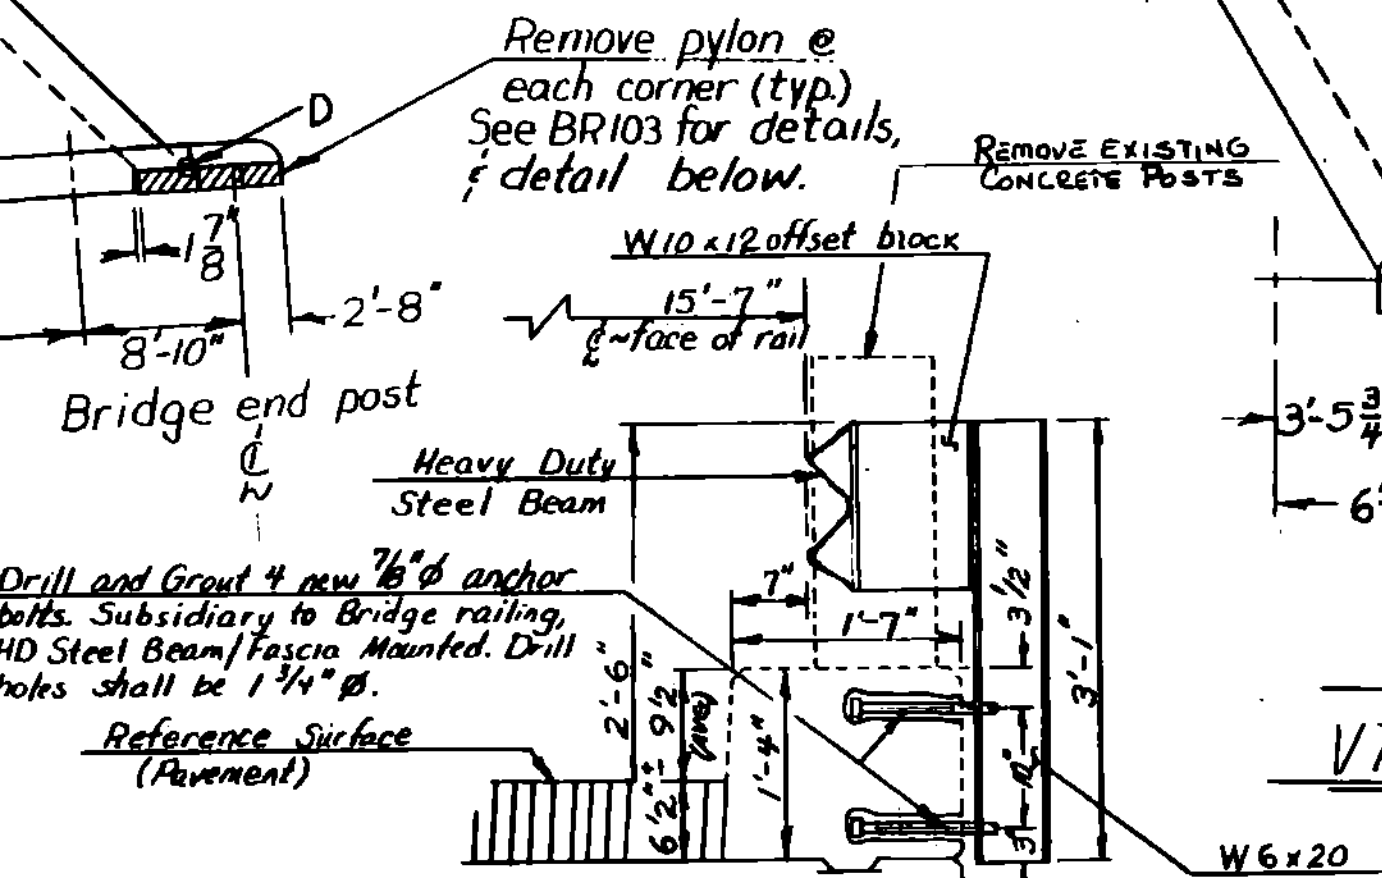 Remove pylon @
each corner (typ.)
See BR103 for details,
& detail below.
D
REMOVE EXISTING
CONCRETE POSTS
W10 x 12 offset block
1 7/8"
2'-8"
8'-10"
15'-7"
℄ ~ face of rail
Bridge end post
℄
3'-5 3/4
6'
Heavy Duty
Steel Beam
Drill and Grout 4 new 7/8" Ø anchor
bolts. Subsidiary to Bridge railing,
HD Steel Beam/Fascia Mounted. Drill
holes shall be 1 3/4" Ø.
7"
1'-7"
3 1/2"
2'-6"
9 1/2"
(AVE)
6 1/2"±
1'-4"
3'-1"
3"
Reference Surface
(Pavement)
W 6 x 20